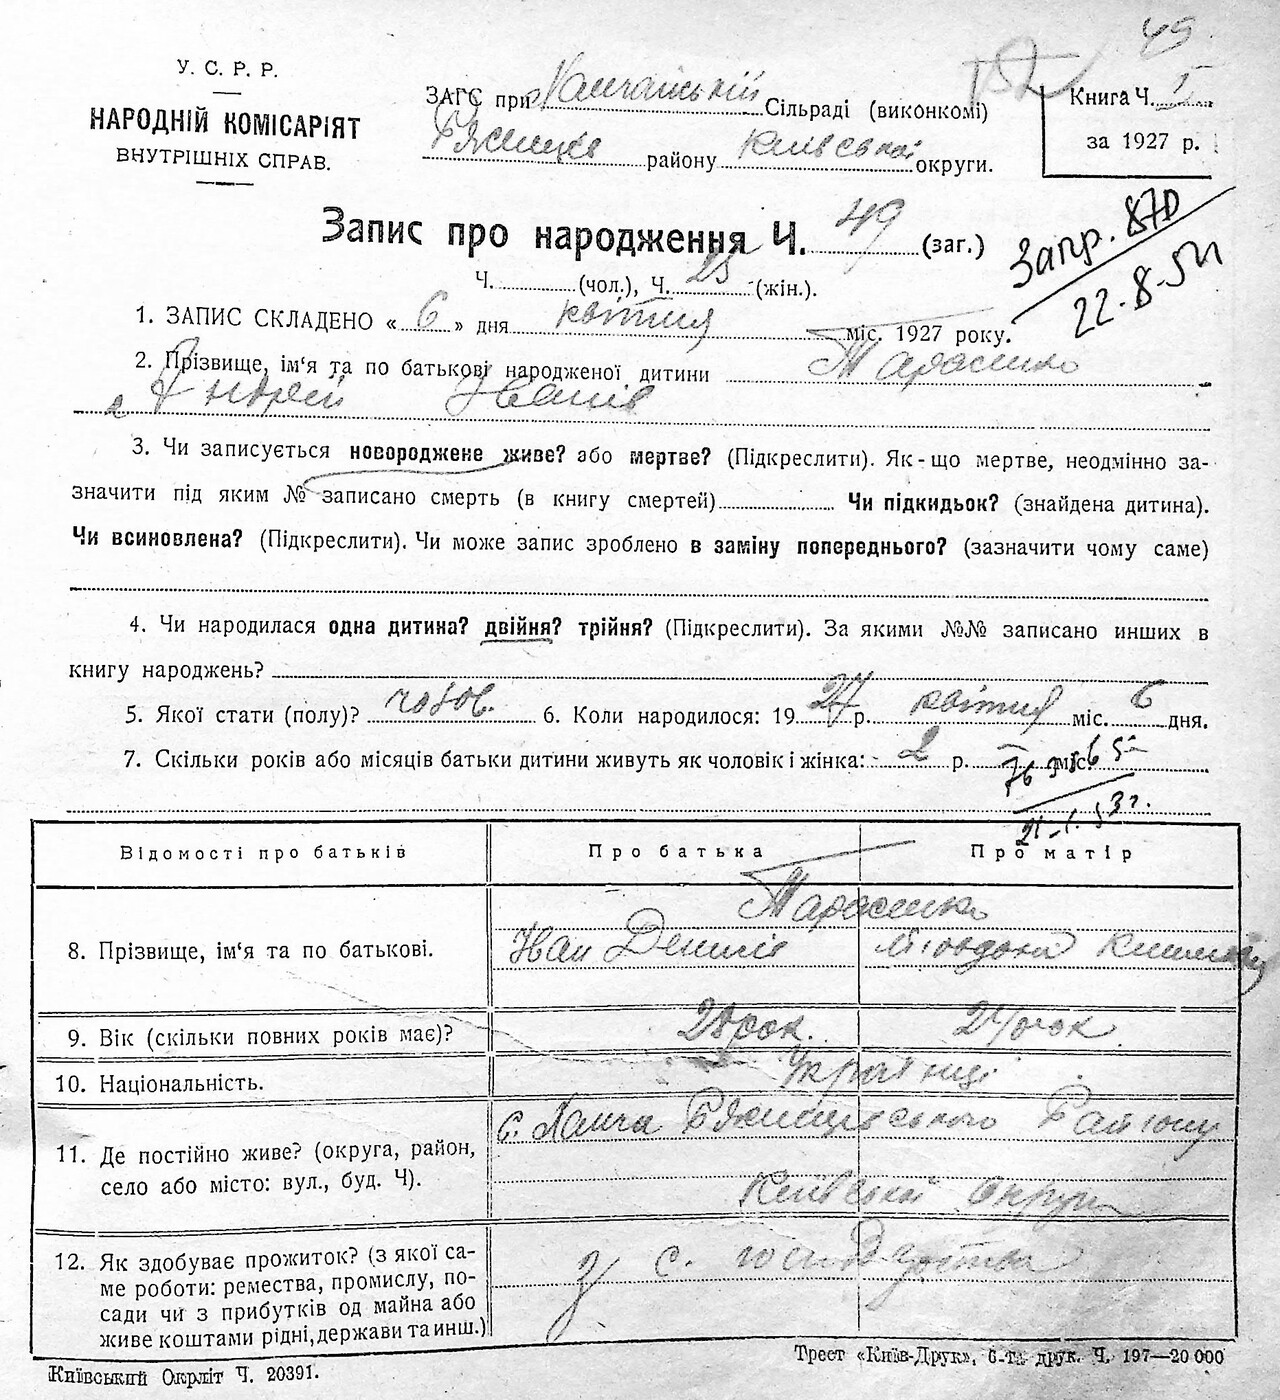 49
У. С. Р. Р.
НАРОДНІЙ КОМІСАРІЯТ
ВНУТРІШНІХ СПРАВ.
ЗАГС при Сільраді (виконкомі)
району Київської округи.
Книга Ч. I
за 1927 р.
Запис про народження Ч. 49 (заг.)
Ч. (чол.), Ч. 25 (жін.).
Запр. 870
22-8-51
1. ЗАПИС СКЛАДЕНО « 6 » дня квітня міс. 1927 року.
2. Прізвище, ім'я та по батькові народженої дитини Тарасенко
Андрей Іванів
3. Чи записується новороджене живе? або мертве? (Підкреслити). Як-що мертве, неодмінно за-
значити під яким № записано смерть (в книгу смертей) Чи підкидьок? (знайдена дитина).
Чи всиновлена? (Підкреслити). Чи може запис зроблено в заміну попереднього? (зазначити чому саме)
4. Чи народилася одна дитина? двійня? трійня? (Підкреслити). За якими №№ записано инших в
книгу народжень?
5. Якої стати (полу)? чолов. 6. Коли народилося: 19 27 р. квітня міс. 6 дня.
7. Скільки років або місяців батьки дитини живуть як чоловік і жінка: 2 р. міс.
Відомості про батьків
Про батька
Про матір
8. Прізвище, ім'я та по батькові.
Тарасенко
Іван Денисів
9. Вік (скільки повних років має)?
28 рок.
24 рок
10. Національність.
Українці
11. Де постійно живе? (округа, район,
село або місто: вул., буд. Ч).
с. Району
Київської округи
12. Як здобуває прожиток? (з якої са-
ме роботи: ремества, промислу, по-
сади чи з прибутків од майна або
живе коштами рідні, держави та инш.)
З с. господарства
Київський Окрліт Ч. 20391.
Трест «Київ-Друк», 6-та друк. Ч. 197—20 000